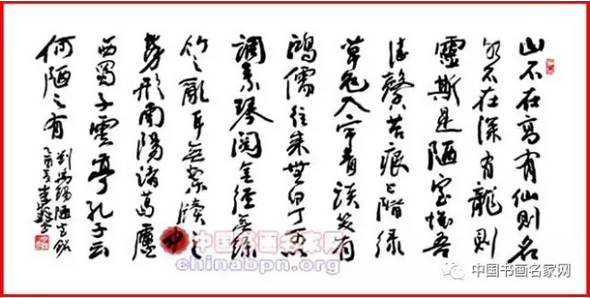 山不在高有仙则名
水不在深有龍则
靈斯是陋室惟吾
德馨苔痕上階绿
草色入帘青谈笑有
鸿儒往来無白丁可以
調素琴阅金经無絲
竹之亂耳無案牍之
劳形南陽诸葛廬
西蜀子雲亭孔子云
何陋之有
刘禹锡陋室铭
中国书画名家网
chinabpn.org
中国书画名家网